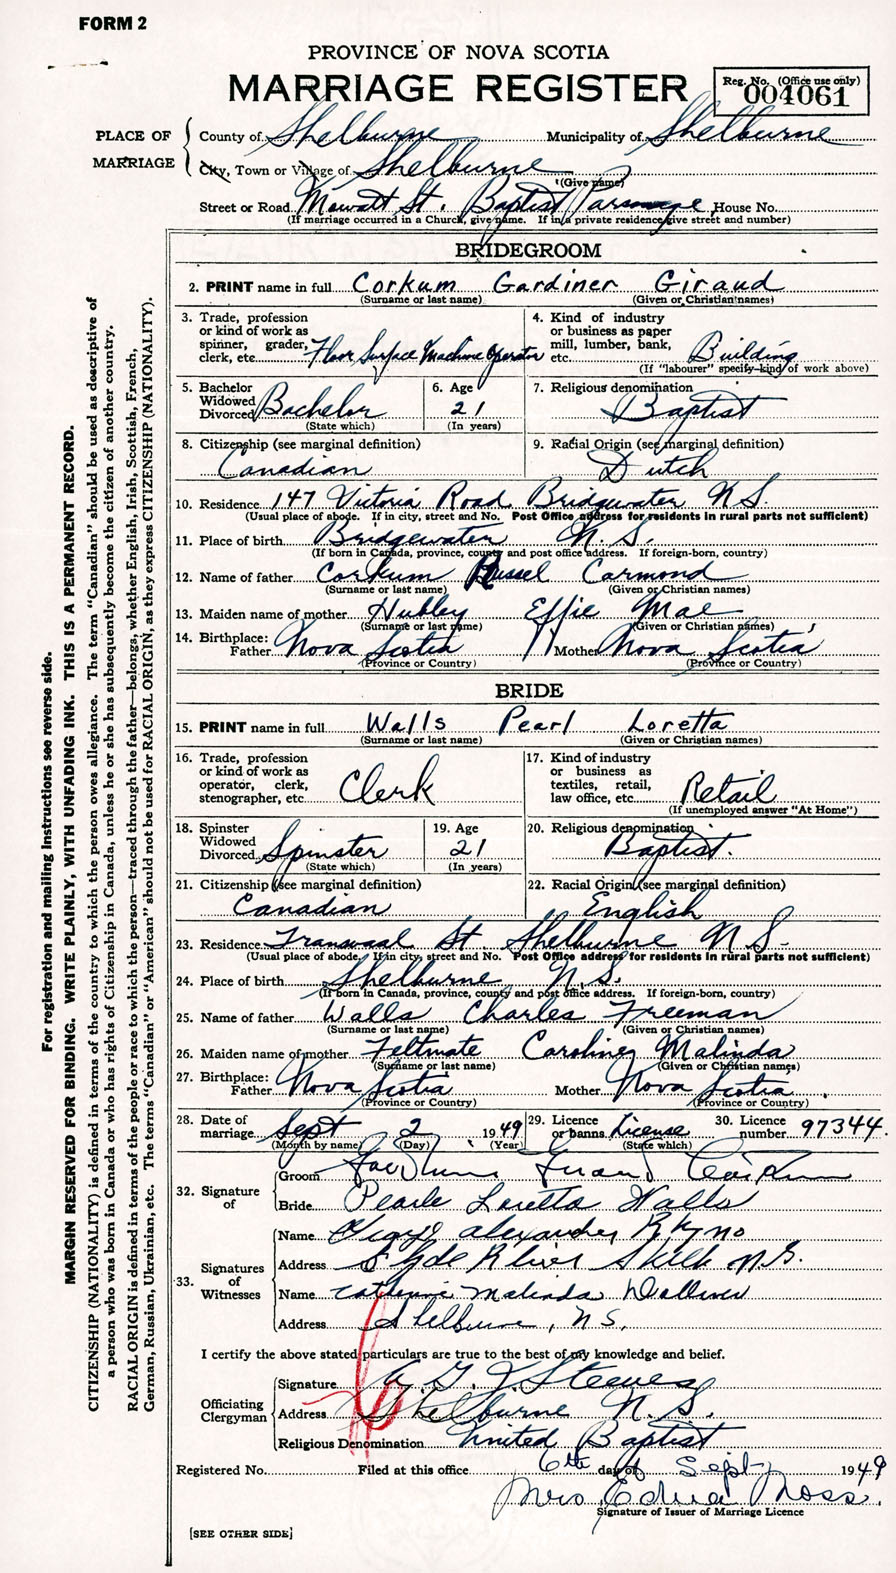 FORM 2
PROVINCE OF NOVA SCOTIA
MARRIAGE REGISTER
Reg. No. (Office use only)
004061
PLACE OF MARRIAGE
County of Shelburne Municipality of Shelburne
City, Town or Village of Shelburne
(Give name)
Street or Road Mowatt St. Baptist Parsonage House No.
(If marriage occurred in a Church, give name. If in a private residence give street and number)
BRIDEGROOM
2. PRINT name in full Corkum Gardiner Giraud
(Surname or last name) (Given or Christian names)
3. Trade, profession or kind of work as spinner, grader, clerk, etc. Floor Surface Machine Operator
4. Kind of industry or business as paper mill, lumber, bank, etc. Building
(If "labourer" specify kind of work above)
5. Bachelor Widowed Divorced Bachelor
(State which)
6. Age 21
(In years)
7. Religious denomination Baptist
8. Citizenship (see marginal definition) Canadian
9. Racial Origin (see marginal definition) Dutch
10. Residence 147 Victoria Road Bridgewater N.S.
(Usual place of abode. If in city, street and No. Post Office address for residents in rural parts not sufficient)
11. Place of birth Bridgewater N.S.
(If born in Canada, province, county and post office address. If foreign-born, country)
12. Name of father Corkum Russel Carmond
(Surname or last name) (Given or Christian names)
13. Maiden name of mother Hubley Effie Mae
(Surname or last name) (Given or Christian names)
14. Birthplace: Father Nova Scotia Mother Nova Scotia
(Province or Country) (Province or Country)
BRIDE
15. PRINT name in full Walls Pearl Loretta
(Surname or last name) (Given or Christian names)
16. Trade, profession or kind of work as operator, clerk, stenographer, etc. Clerk
17. Kind of industry or business as textiles, retail, law office, etc. Retail
(If unemployed answer "At Home")
18. Spinster Widowed Divorced Spinster
(State which)
19. Age 21
(In years)
20. Religious denomination Baptist.
21. Citizenship (see marginal definition) Canadian
22. Racial Origin (see marginal definition) English
23. Residence Transvaal St. Shelburne N.S.
(Usual place of abode. If in city, street and No. Post Office address for residents in rural parts not sufficient)
24. Place of birth Shelburne N.S.
(If born in Canada, province, county and post office address. If foreign-born, country)
25. Name of father Walls Charles Freeman
(Surname or last name) (Given or Christian names)
26. Maiden name of mother Feltmate Caroline Malinda
(Surname or last name) (Given or Christian names)
27. Birthplace: Father Nova Scotia Mother Nova Scotia
(Province or Country) (Province or Country)
28. Date of marriage Sept 2 1949
(Month by name) (Day) (Year)
29. Licence or banns License
(State which)
30. Licence number 97344.
32. Signature of
Groom
Bride Pearle Loretta Walls
33. Signatures of Witnesses
Name Alexander Ryno
Address Clyde River Shelb N.S.
Name Catherine Malinda
Address Shelburne, N.S.
I certify the above stated particulars are true to the best of my knowledge and belief.
Officiating Clergyman
Signature Steeves
Address Shelburne N.S.
Religious Denomination United Baptist
Registered No. Filed at this office 6th day of Sept 1949
Mrs Edna Moss
Signature of Issuer of Marriage Licence
[SEE OTHER SIDE]
For registration and mailing instructions see reverse side.
MARGIN RESERVED FOR BINDING. WRITE PLAINLY, WITH UNFADING INK. THIS IS A PERMANENT RECORD.
CITIZENSHIP (NATIONALITY) is defined in terms of the country to which the person owes allegiance. The term "Canadian" should be used as descriptive of
a person who was born in Canada or who has rights of Citizenship in Canada, unless he or she has subsequently become the citizen of another country.
RACIAL ORIGIN is defined in terms of the people or race to which the person—traced through the father—belongs, whether English, Irish, Scottish, French,
German, Russian, Ukrainian, etc. The terms "Canadian" or "American" should not be used for RACIAL ORIGIN, as they express CITIZENSHIP (NATIONALITY).